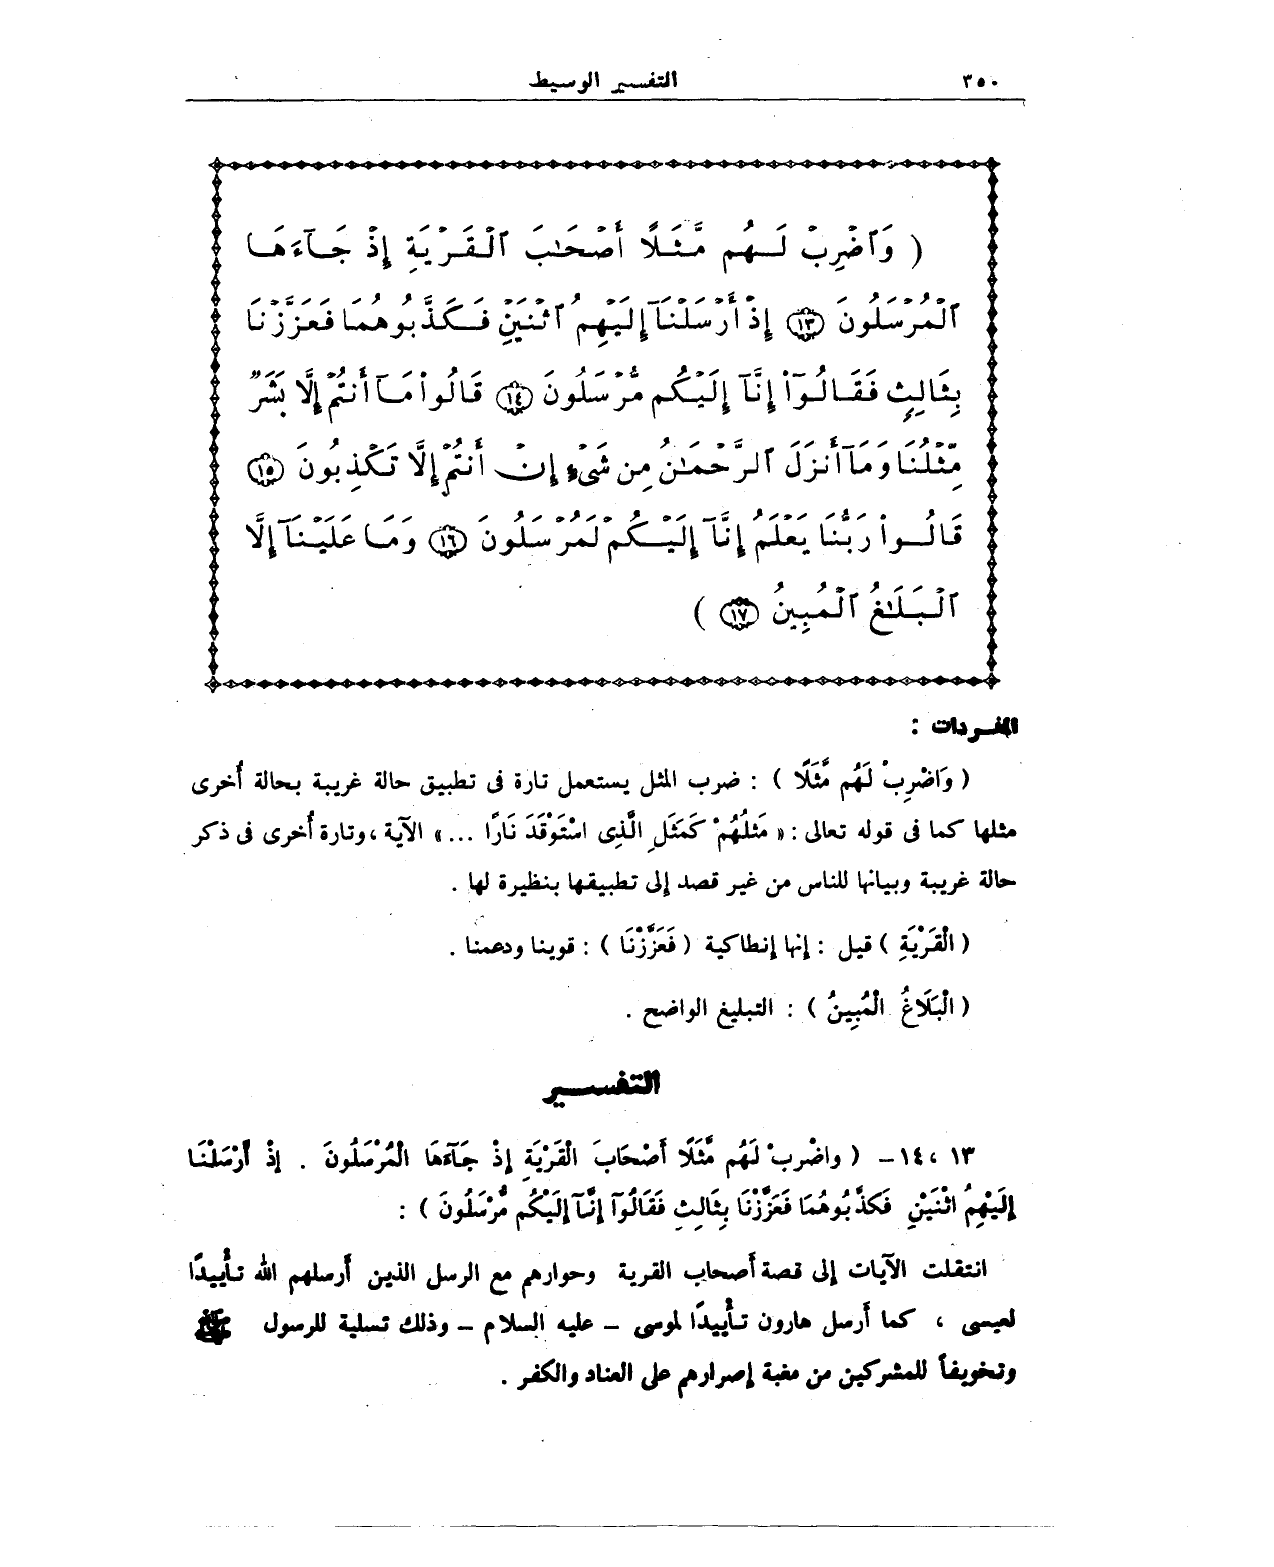 ٣٥٠
التفسير الوسيط
( وَٱضْرِبْ لَهُم مَّثَلًا أَصْحَٰبَ ٱلْقَرْيَةِ إِذْ جَآءَهَا
ٱلْمُرْسَلُونَ ١٣ إِذْ أَرْسَلْنَآ إِلَيْهِمُ ٱثْنَيْنِ فَكَذَّبُوهُمَا فَعَزَّزْنَا
بِثَالِثٍ فَقَالُوٓا۟ إِنَّآ إِلَيْكُم مُّرْسَلُونَ ١٤ قَالُوا۟ مَآ أَنتُمْ إِلَّا بَشَرٌ
مِّثْلُنَا وَمَآ أَنزَلَ ٱلرَّحْمَٰنُ مِن شَىْءٍ إِنْ أَنتُمْ إِلَّا تَكْذِبُونَ ١٥
قَالُوا۟ رَبُّنَا يَعْلَمُ إِنَّآ إِلَيْكُمْ لَمُرْسَلُونَ ١٦ وَمَا عَلَيْنَآ إِلَّا
ٱلْبَلَٰغُ ٱلْمُبِينُ ١٧ )
المفـردات :
( وَاضْرِبْ لَهُم مَّثَلًا ) : ضرب المثل يستعمل تارة فى تطبيق حالة غريبة بحالة أُخرى
مثلها كما فى قوله تعالى : « مَثَلُهُمْ كَمَثَلِ الَّذِى اسْتَوْقَدَ نَارًا ... » الآية ، وتارة أُخرى فى ذكر
حالة غريبة وبيانها للناس من غير قصد إلى تطبيقها بنظيرة لها .
( الْقَرْيَةِ ) قيل : إنها إنطاكية ( فَعَزَّزْنَا ) : قوينا ودعمنا .
( الْبَلَاغُ الْمُبِينُ ) : التبليغ الواضح .
التفسـير
١٣ ، ١٤ - ( واضْرِبْ لَهُم مَّثَلًا أَصْحَابَ الْقَرْيَةِ إِذْ جَآءَهَا الْمُرْسَلُونَ . إِذْ أَرْسَلْنَا
إِلَيْهِمُ اثْنَيْنِ فَكَذَّبُوهُمَا فَعَزَّزْنَا بِثَالِثٍ فَقَالُوٓا إِنَّآ إِلَيْكُم مُّرْسَلُونَ ) :
انتقلت الآيات إلى قصة أصحاب القرية وحوارهم مع الرسل الذين أرسلهم الله تأييدًا
لعيسى ، كما أرسل هارون تأييدًا لموسى - عليه السلام - وذلك تسلية للرسول ﷺ
وتخويفاً للمشركين من مغبة إصرارهم على العناد والكفر .